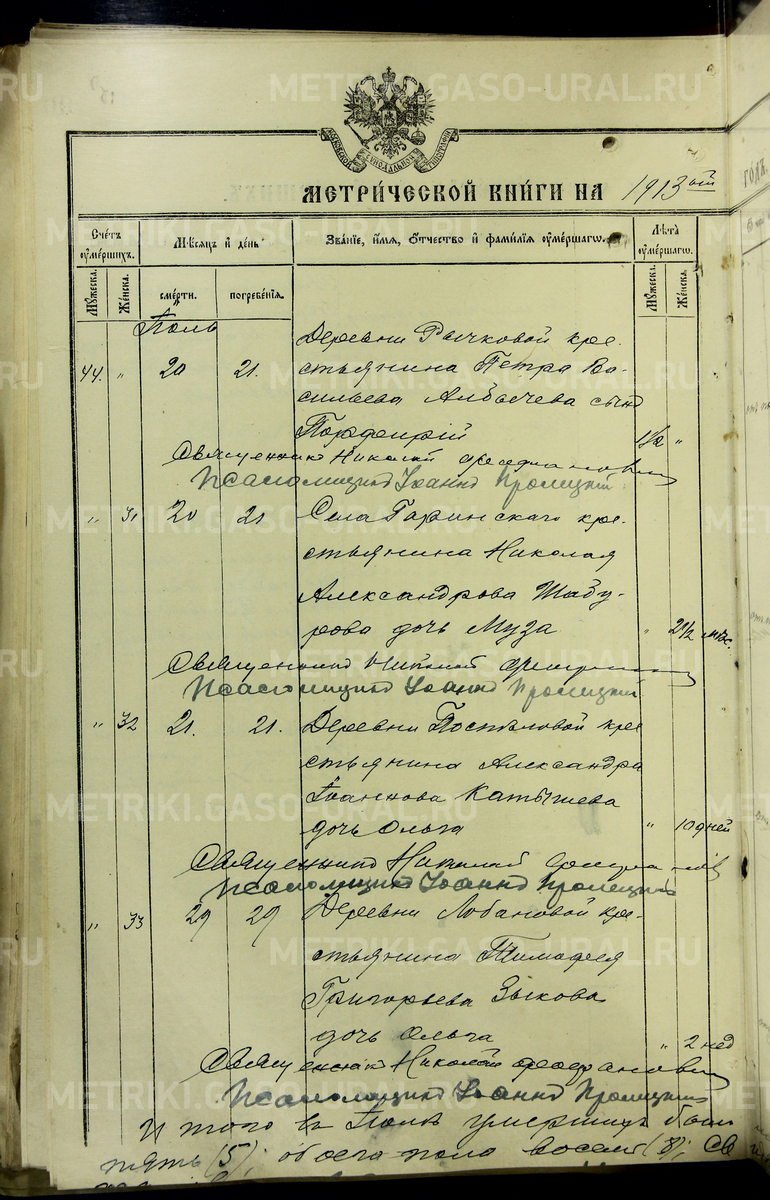 МЕТРИЧЕСКОЙ КНИГИ НА 1913 ой
Счетъ умершихъ.
Мѣсяцъ и день
Званіе, имя, отчество и фамилія умершаго.
Лѣта умершаго.
Мужеска.
Женска.
смерти.
погребенія.
Мужеска.
Женска.
Іюль
Деревни Рычковой кре-
44. " 20 21. стьянина Петра Ва-
сильева Албычева сынъ
Порфирій 1 1/2 "
Священникъ Николай
Псаломщикъ Іоаннъ
" 31 20 21 Села Гаринскаго кре-
стьянина Николая
Александрова Шабу-
рова дочь Муза " 2 1/2 мѣс.
Священникъ Николай
Псаломщикъ Іоаннъ
" 32 21. 21. Деревни Поспѣловой кре
стьянина Александра
Іоаннова Катышева
дочь Ольга " 10 дней
Священникъ Николай
Псаломщикъ Іоаннъ
" 33 29 29 Деревни Лобановой кре-
стьянина Тимофея
Григорьева Зыкова
дочь Ольга " 2 нед
Священникъ Николай
Псаломщикъ Іоаннъ
Итого въ Іюлѣ умершихъ было
пять (5); обоего пола восемь (8); св
METRIKI.GASO-URAL.RU